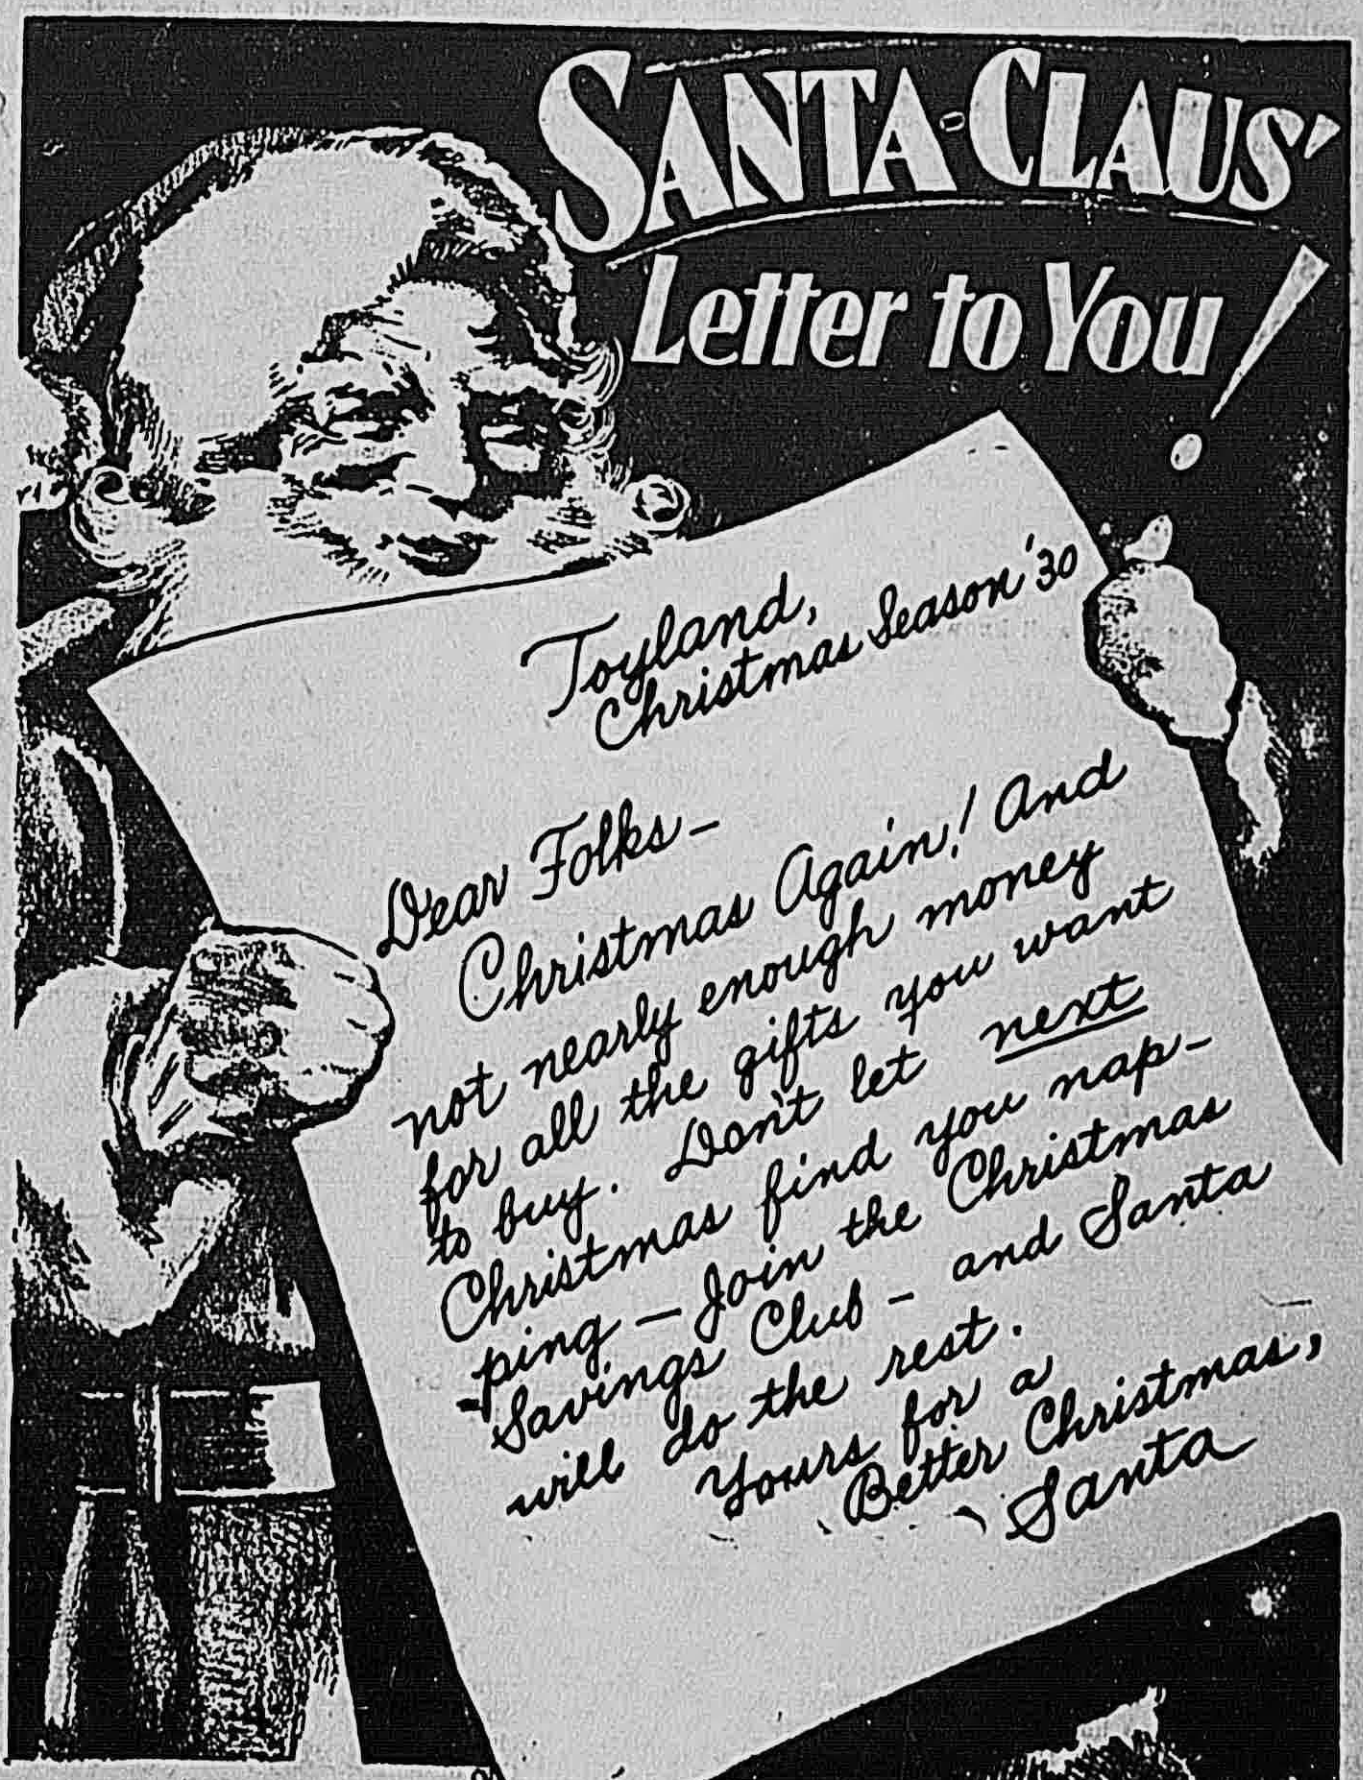 SANTA-CLAUS'
Letter to You!
Toyland,
Christmas Season '30
Dear Folks-
Christmas Again! And
not nearly enough money
for all the gifts you want
to buy. Don't let next
Christmas find you nap-
ping - Join the Christmas
Savings Club - and Santa
will do the rest.
Yours for a
Better Christmas,
Santa